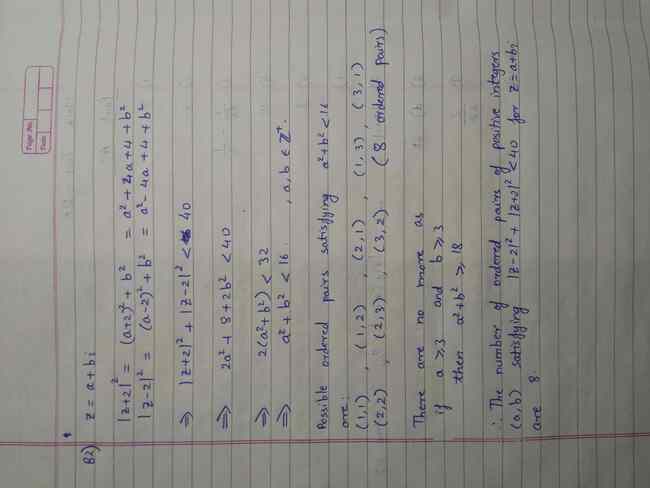 Page No.
Date
B2) z = a + bi
|z+2|² = (a+2)² + b² = a² + 4a + 4 + b²
|z-2|² = (a-2)² + b² = a² - 4a + 4 + b²
⇒ |z+2|² + |z-2|² < 40
⇒ 2a² + 8 + 2b² < 40
⇒ 2(a² + b²) < 32
⇒ a² + b² < 16 , a, b ∈ Z⁺.
Possible ordered pairs satisfying a² + b² < 16
are:
(1,1) , (1,2) , (2,1) , (1,3) , (3,1)
(2,2) , (2,3) , (3,2) (8 ordered pairs)
There are no more as
if a ≥ 3 and b ≥ 3
then a² + b² ≥ 18
∴ The number of ordered pairs of positive integers
(a,b) satisfying |z-2|² + |z+2|² < 40 for z = a+bi
are 8.